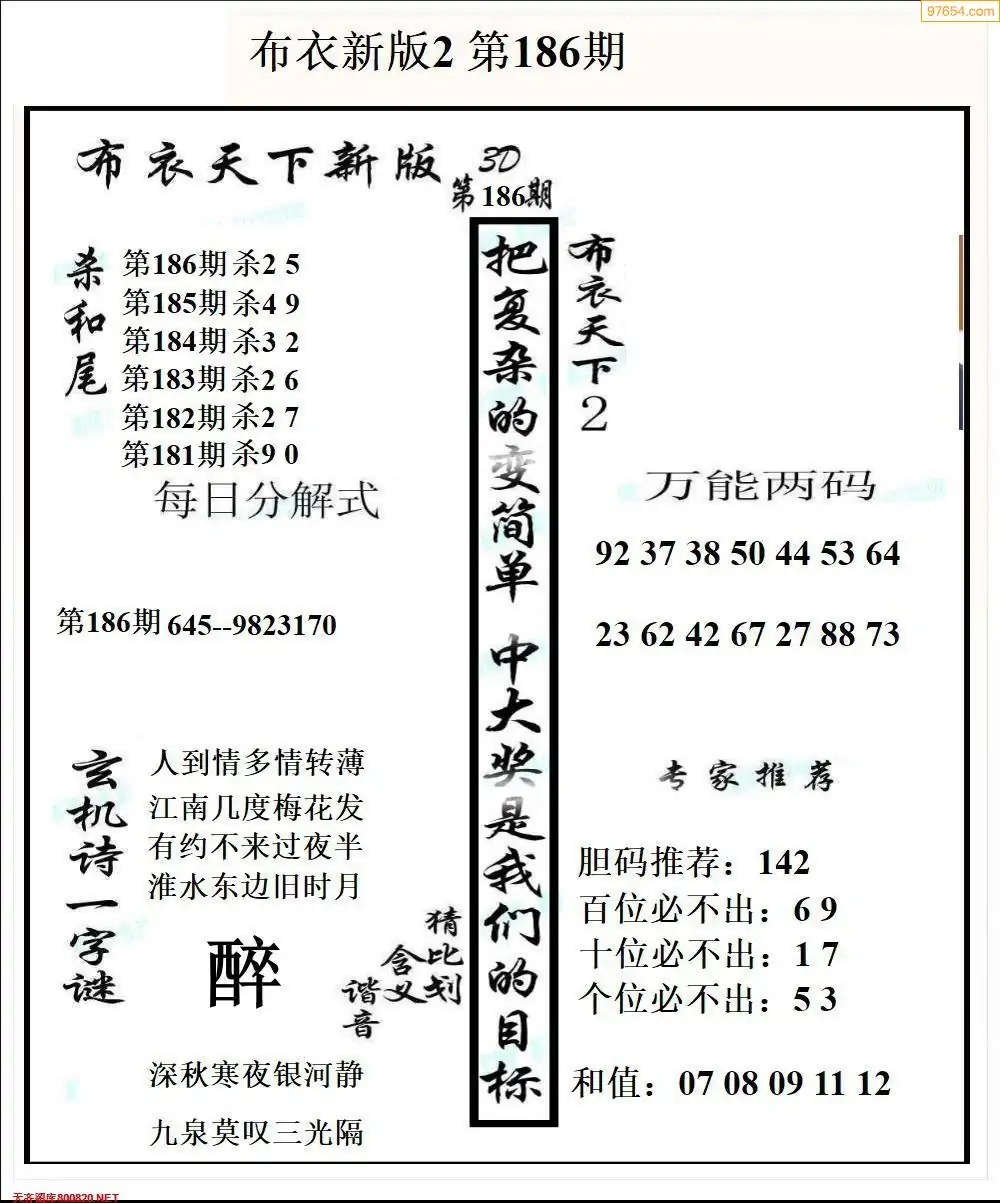 97654.com
布衣新版2 第186期
布衣天下新版
3D
第186期
杀和尾
第186期 杀2 5
第185期 杀4 9
第184期 杀3 2
第183期 杀2 6
第182期 杀2 7
第181期 杀9 0
每日分解式
第186期 645--9823170
玄机诗一字谜
人到情多情转薄
江南几度梅花发
有约不来过夜半
淮水东边旧时月
醉
猜比划
含义
谐音
深秋寒夜银河静
九泉莫叹三光隔
把复杂的变简单 中大奖是我们的目标
布衣天下2
万能两码
92 37 38 50 44 53 64
23 62 42 67 27 88 73
专家推荐
胆码推荐：142
百位必不出：6 9
十位必不出：1 7
个位必不出：5 3
和值：07 08 09 11 12
天齐图库800820.NET